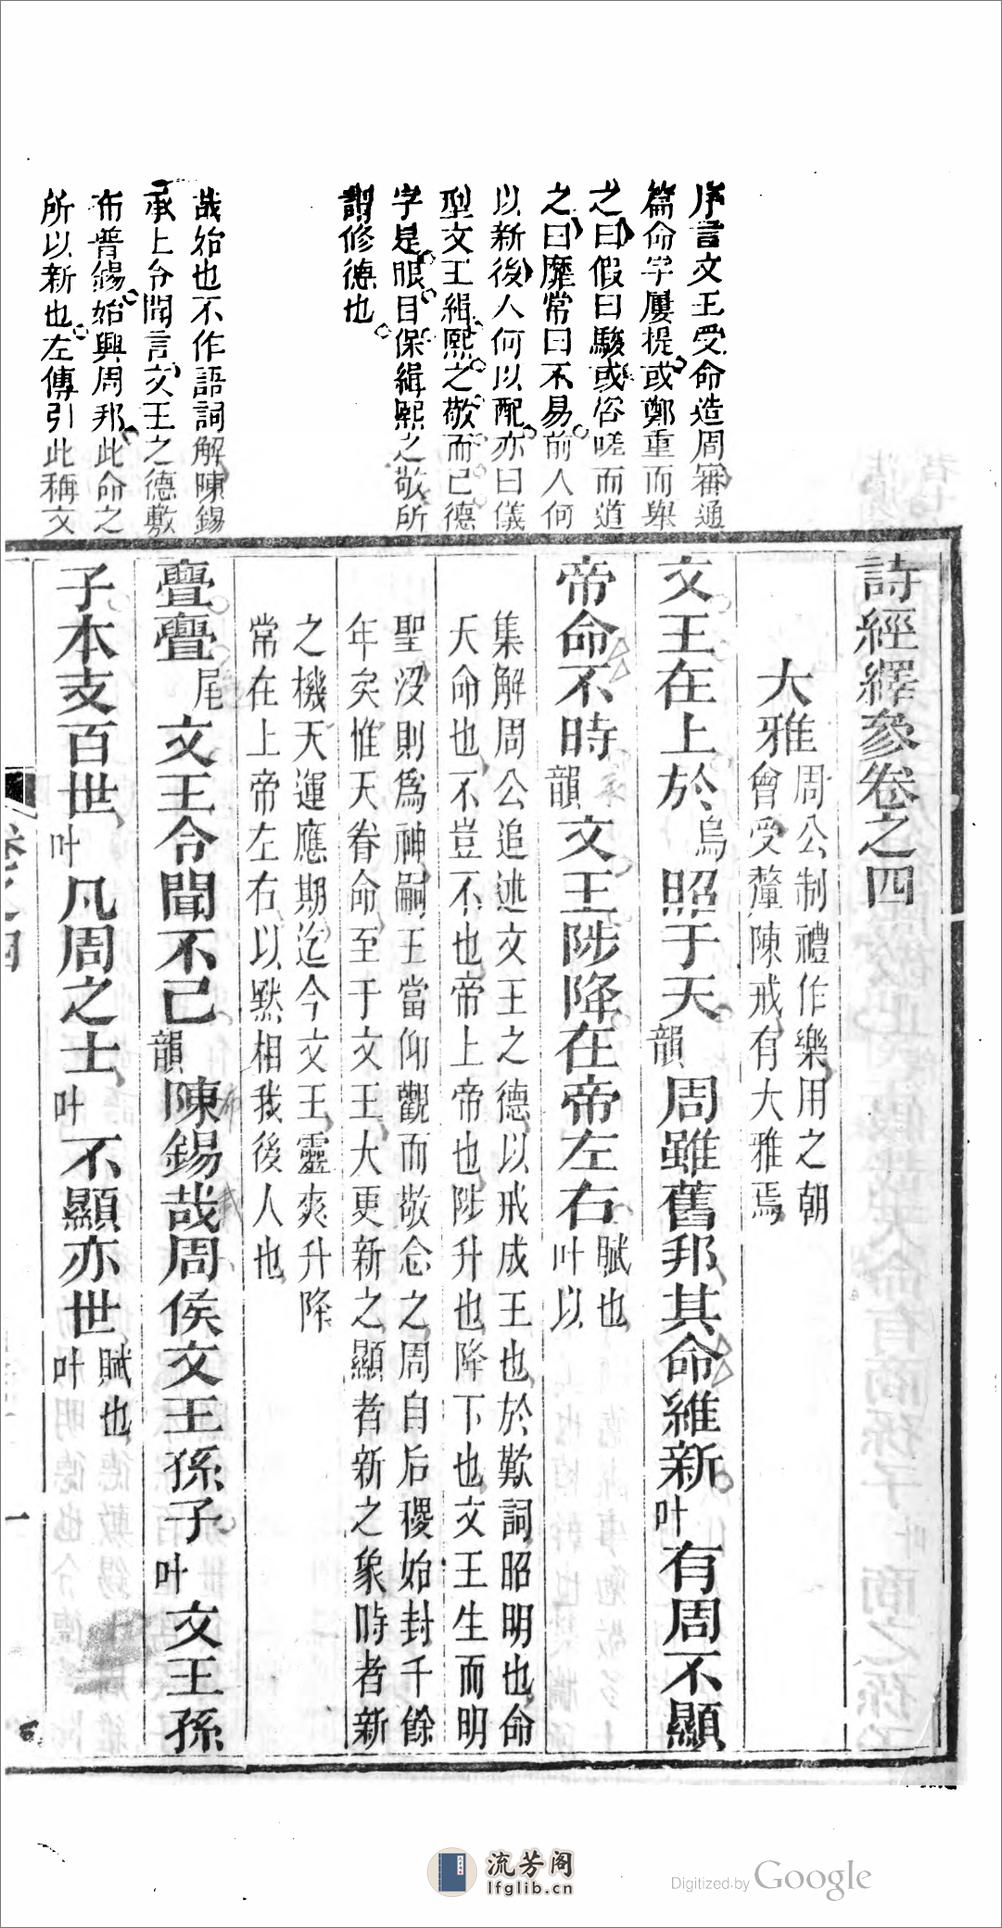 序言文王受命造周審通
篇命字屢提或鄭重而舉
之曰假曰駿或咨嗟而道
之曰靡常曰不易前人何
以新後人何以配亦曰儀
型文王緝熙之敬而已德
字是眼目保緝熙之敬所
謂修德也
哉始也不作語詞解陳錫
承上令聞言文王之德敷
布普錫始興周邦此命之
所以新也左傳引此稱文
詩經繹參卷之四
大雅周公制禮作樂用之朝
會受釐陳戒有大雅焉
文王在上於烏昭于天韻周雖舊邦其命維新叶有周不顯
帝命不時韻文王陟降在帝左右叶以賦也
集解周公追述文王之德以戒成王也於歎詞昭明也命
天命也不豈不也帝上帝也陟升也降下也文王生而明
聖沒則為神嗣王當仰觀而敬念之周自后稷始封千餘
年矣惟天眷命至于文王大更新之顯者新之象時者新
之機天運應期迄今文王靈爽升降
常在上帝左右以默相我後人也
亹亹尾文王令聞不已韻陳錫哉周侯文王孫子叶文王孫
子本支百世叶凡周之士叶不顯亦世叶賦也
卷之四
一
流芳阁
lfglib.cn
Digitized by Google